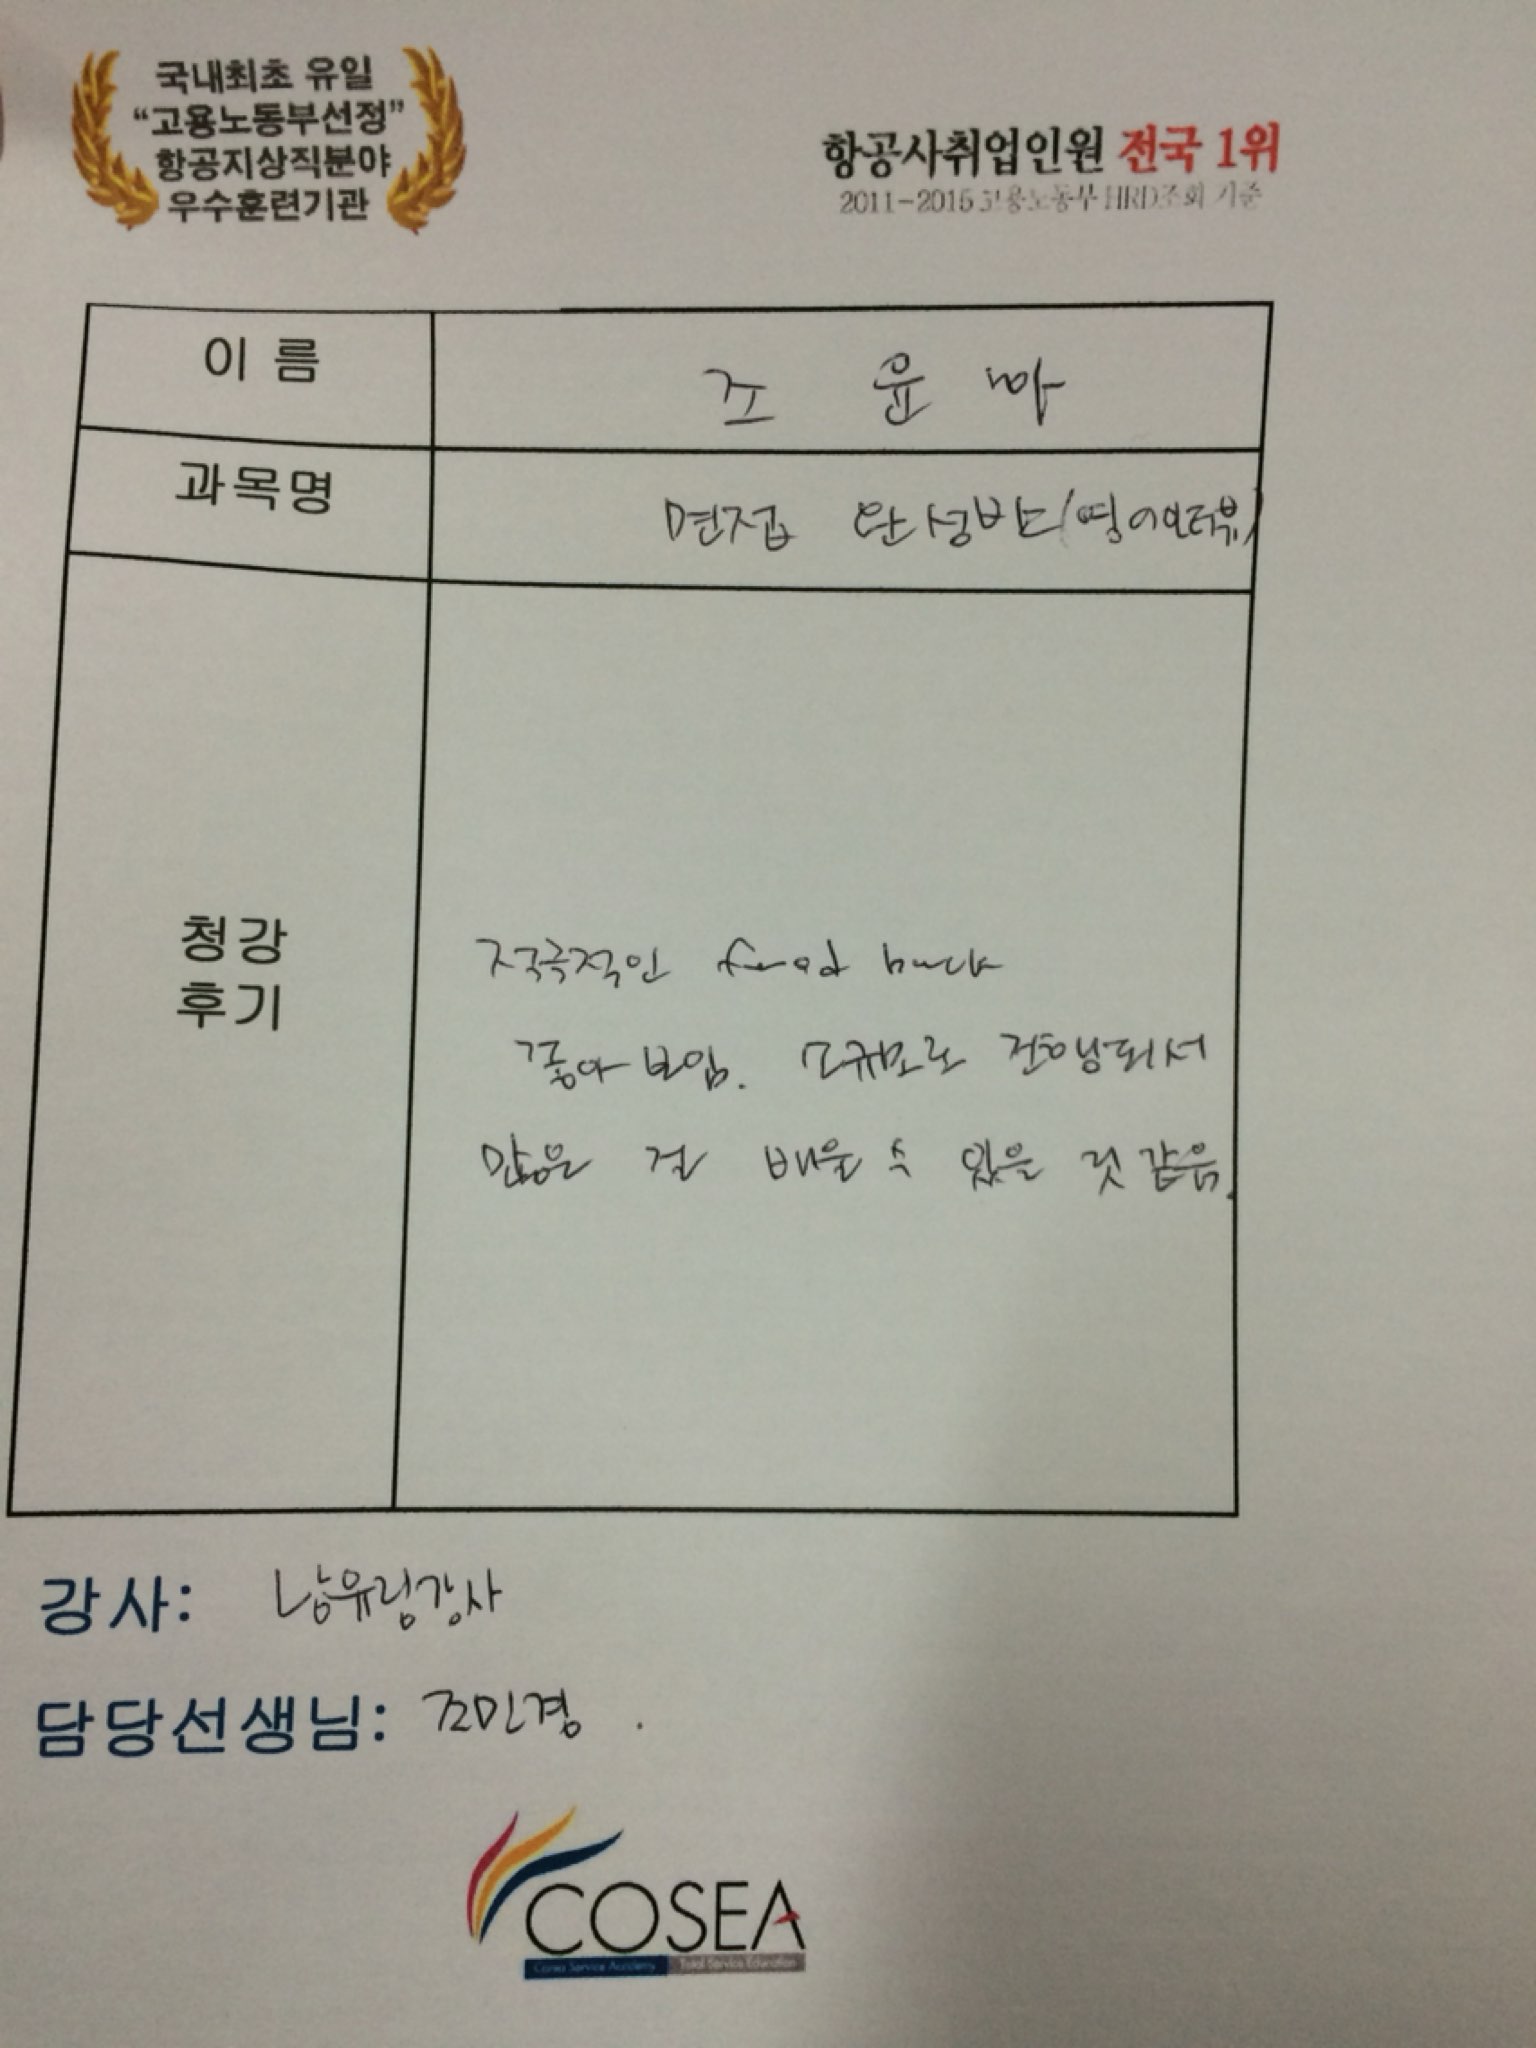 국내최초 유일
“고용노동부선정”
항공지상직분야
우수훈련기관
항공사취업인원 전국 1위
2011-2015 고용노동부 HRD조회 기준
이 름
조 윤
과목명
면접 완성반 (영어인터뷰)
청강
후기
적극적인
좋아 보임. 소규모로 진행되서
많은 걸 배울 수 있을 것 같음.
강사: 남유림강사
담당선생님: 조민경.
COSEA
Cosea Service Academy Total Service Education